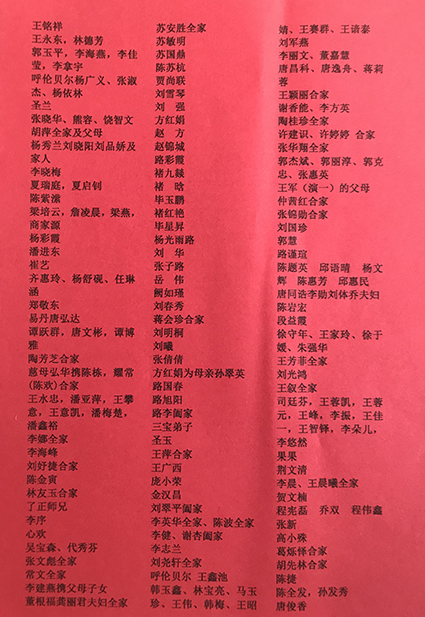 王铭祥
王永东，林德芳
郭玉平，李海燕，李佳
莹，李拿宇
呼伦贝尔杨广义、张淑
杰、杨依林
圣兰
张晓华、熊容、饶智文
胡萍全家及父母
杨秀兰刘晓阳刘品娇及
家人
李晓梅
夏瑞庭，夏启钊
陈紫潍
梁培云，詹凌晨，梁燕，
商家源
杨彩霞
潘进东
崔艺
齐惠玲、杨舒砚、任琳
涵
郑敬东
易丹唐弘达
谭跃群，唐文彬，谭博
雅
陶芳芝合家
慈母弘华携陈栋，耀常
(陈欢)合家
王水忠，潘亚萍，王攀
意，王意凯，潘梅楚，
潘鑫裕
李娜全家
李海峰
刘妤捷合家
陈金寅
林友玉合家
了正师兄
李序
心欢
吴宝森、代秀芬
张文彪全家
常文全家
李建燕携父母子女
董根福龚丽君夫妇全家
苏安胜全家
苏敏明
苏国鼎
陈苏杭
贾尚联
刘雪琴
刘　强
方红娟
赵　方
赵锦城
路彩霞
褚九燚
褚　晗
毕玉鹏
褚红艳
毕星昇
杨光雨路
刘　华
张子路
岳　伟
阙如瑾
刘春秀
蒋会珍合家
刘明桐
刘曦
张倩倩
方红娟为母亲孙翠英
路国春
路旭阳
路李阖家
三宝弟子
圣玉
王萍合家
王广西
庞小荣
金汉昌
刘翠平阖家
李英华全家、陈波全家
李健、谢杏阖家
李志兰
刘尧轩全家
呼伦贝尔 王鑫池
韩玉鑫、林宝亮、马玉
珍、王伟、韩梅、王昭
婧、王赛群、王谙泰
刘军燕
李丽文、董嘉慧
唐昌科、唐逸舟、蒋莉
蓉
王颖丽合家
谢香能、李方英
陶桂珍全家
许建识、许婷婷 合家
张华翔全家
郭杰斌、郭丽淳、郭克
忠、张惠英
王军（演一）的父母
仲茜红合家
张锦勋合家
刘国珍
郭慧
路谨瑄
陈题英　邱语晴　杨文
辉　陈惠芳　邱惠民
唐同浩李勋刘体乔夫妇
陈岩宏
段益霞
徐守年、王家玲、徐于
媛、朱强华
王芳菲全家
刘光鸿
王叙全家
司廷芬，王蓉凯，王蓉
元，王峰，李振，王佳
一，王智铎，李朵儿，
李悠然
果果
荆文清
李晨、王晨曦全家
贺文楠
程宪磊　乔双　程伟鑫
张新
高小殊
葛烁怿合家
胡先林合家
陈捷
陈全发，孙发秀
唐俊香